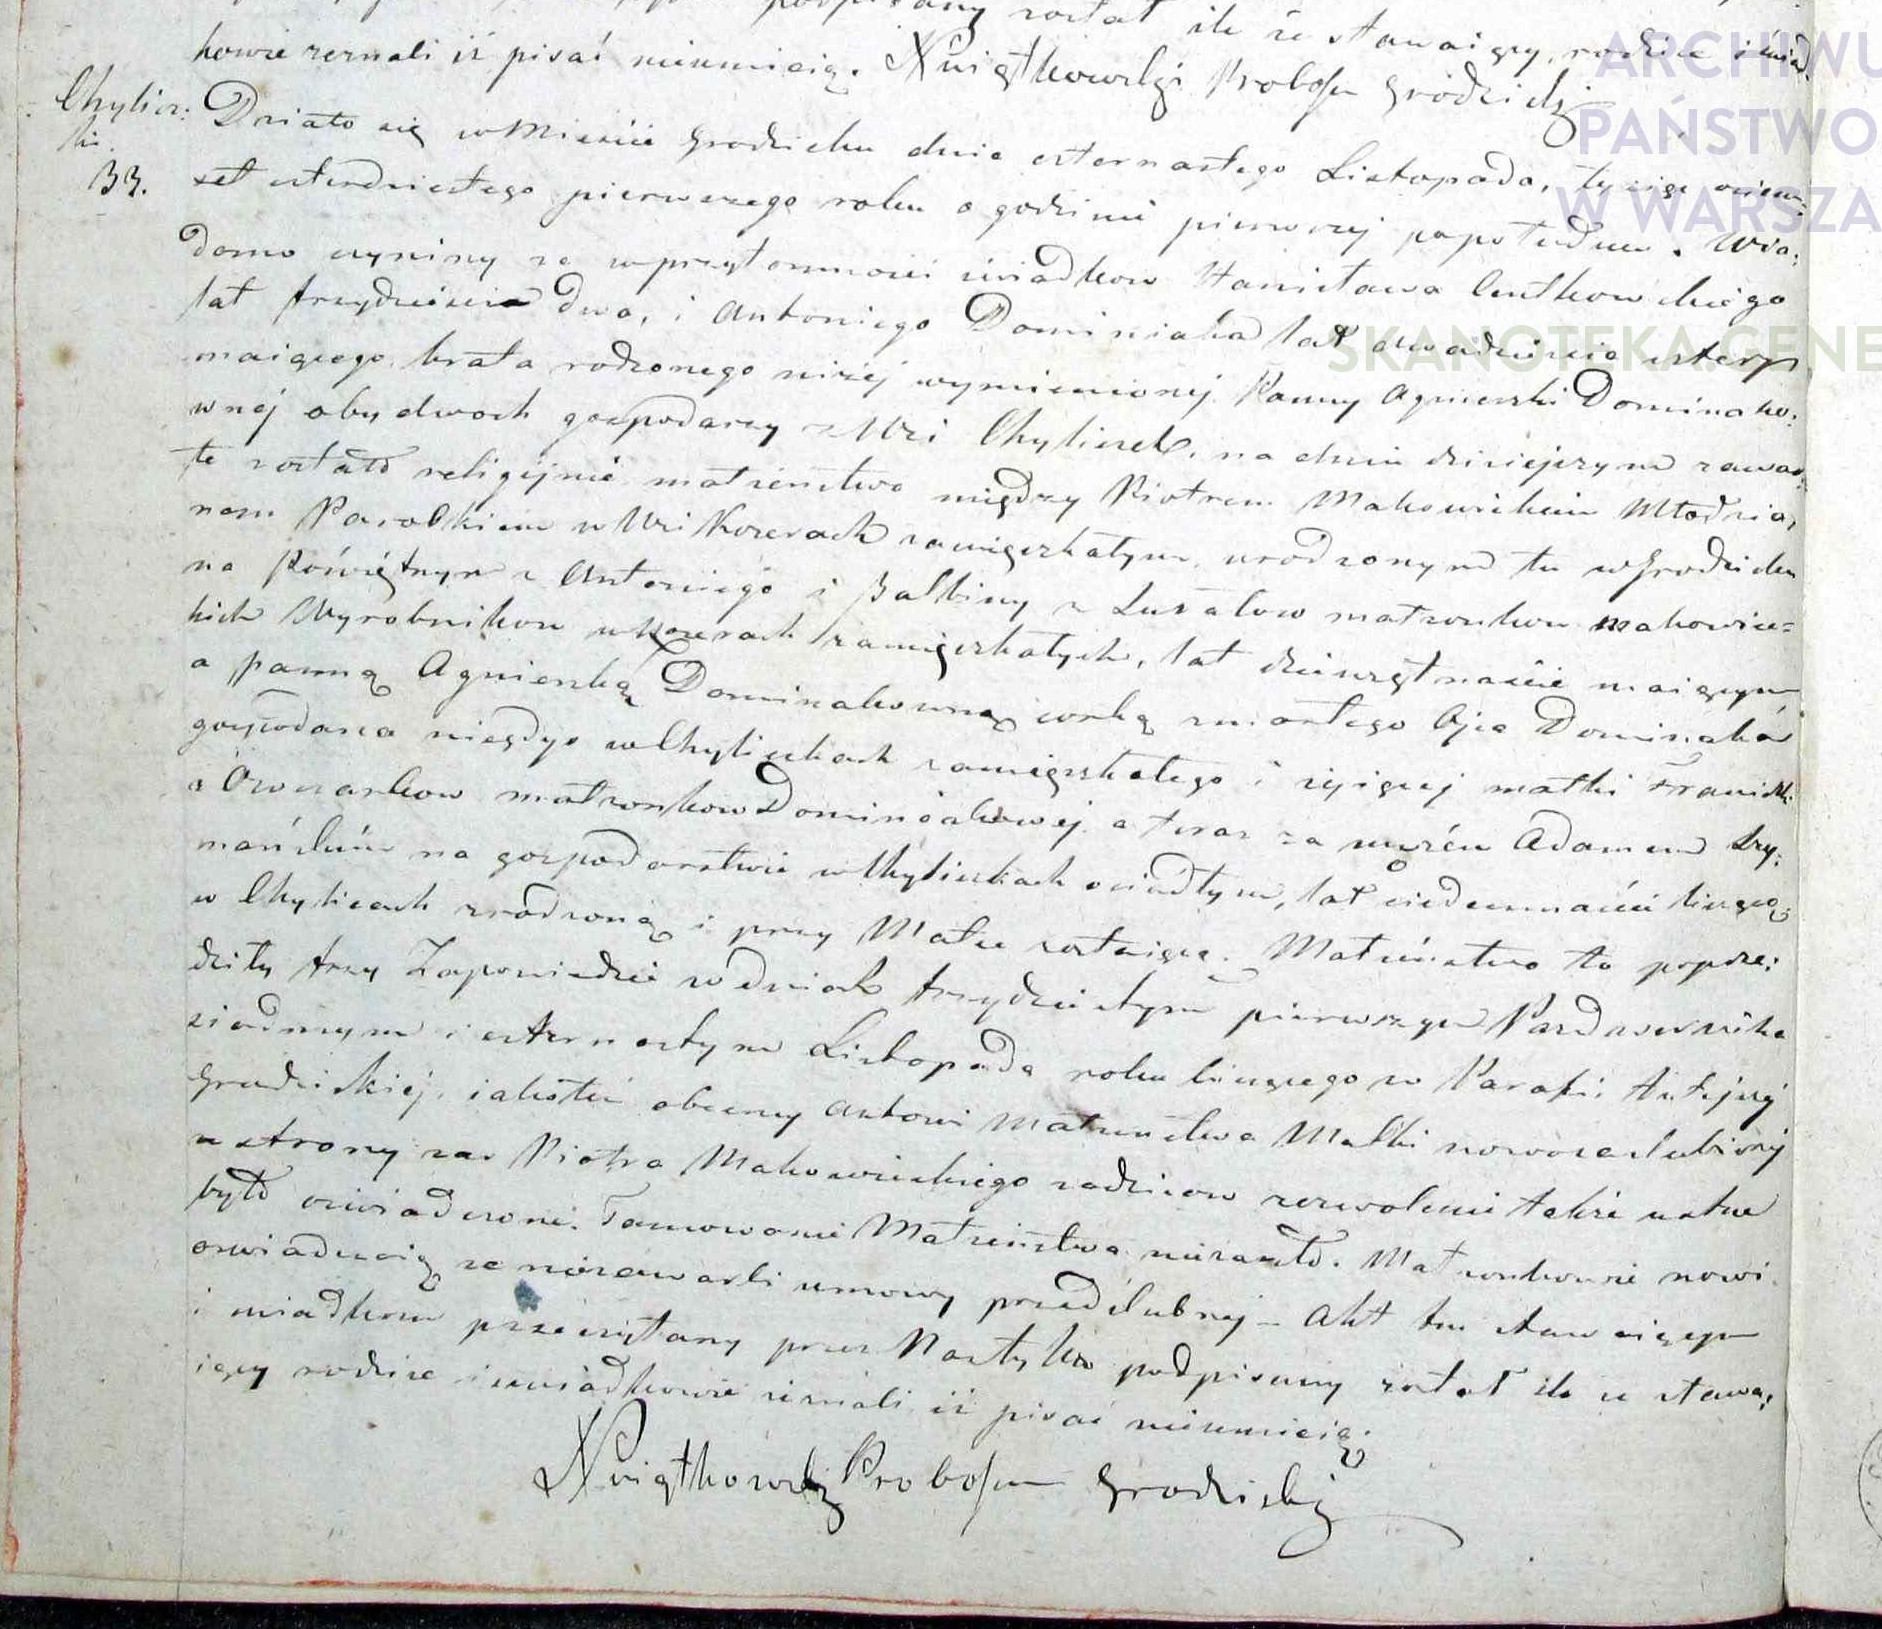 podpisany został ile że stawaiący, rodzice i świad
kowie zeznali iż pisać nieumieią. XKwiątkowski Proboszcz Grodziski
Chylicz:
ki.
33.
Działo się w Mieście Grodzisku dnia czternastego Listopada, tysiąc ośiem:
set czterdziestego pierwszego roku o godzinie pierwszej popołudniu. Wia:
domo czyniny że w przytomności świadkow Stanisława Cutkowskiego
lat trzydzieścia dwa, i Antoniego Dominiaka lat dwadzieścia cztery
maiącego, brata rodzonego niżej wymienionej Panny Agnieszki Dominako:
wnej obydwoch gospodarzy z Wsi Chyliczek, na dniu dzisiejszym zawar:
te zostało religijnie małżeństwo między Piotrem Makowieckim Młodzia,
nem Parobkiem w Wsi Kozerach zamięszkałym, urodzonym tu w Grodzisku
na Poświętnym z Antoniego i Balbiny z Lusałow małżonkow Makowiec=
kich Wyrobnikow w Kozerach zamięszkałych, lat dziewiętnaście maiącym
a panną Agnieszką Dominakowną corką zmarłego Ojca Dominaka
gospodarza niegdyś w Chyliczkach zamięszkałego i żyiącej matki Franciszki
z Owczarkow małżonkow Dominiakowej a teraz za mężem Adamem Szy:
mańskim na gospodarstwie w Chyliczkach osiadłym, lat siedemnaście liczącą;
w Chylicach zrodzoną i przy Matce zostaiącą. Małżeństwo to poprze:
dziły trzy Zapowiedzie w dniach trzydziestym pierwszym Pazdziernika
siodmym i czternastym Listopada roku bieżącego w Parafii tutejszej
Grodziskiej, iakoteż obecney Aktowi Małżeństwa Matki nowozaślubionej
z strony zaś Piotra Makowieckiego rodzicow zezwolenie także ustne
było oświadczone. Tamowanie Małżeństwa niezaszło. Małżonkowie nowi
oswiadczaią że niezawarli umowy przedślubnej – Akt ten stawaiącym
i świadkom przeczytany przez Nas tylko podpisany został ile że stawa:
iący rodzice i świadkowie zeznali iż pisać nieumieią.
XKwiątkowski Proboszcz Grodziski
ARCHIWU
PAŃSTWO
W WARSZA
SKANOTEKA.GENE